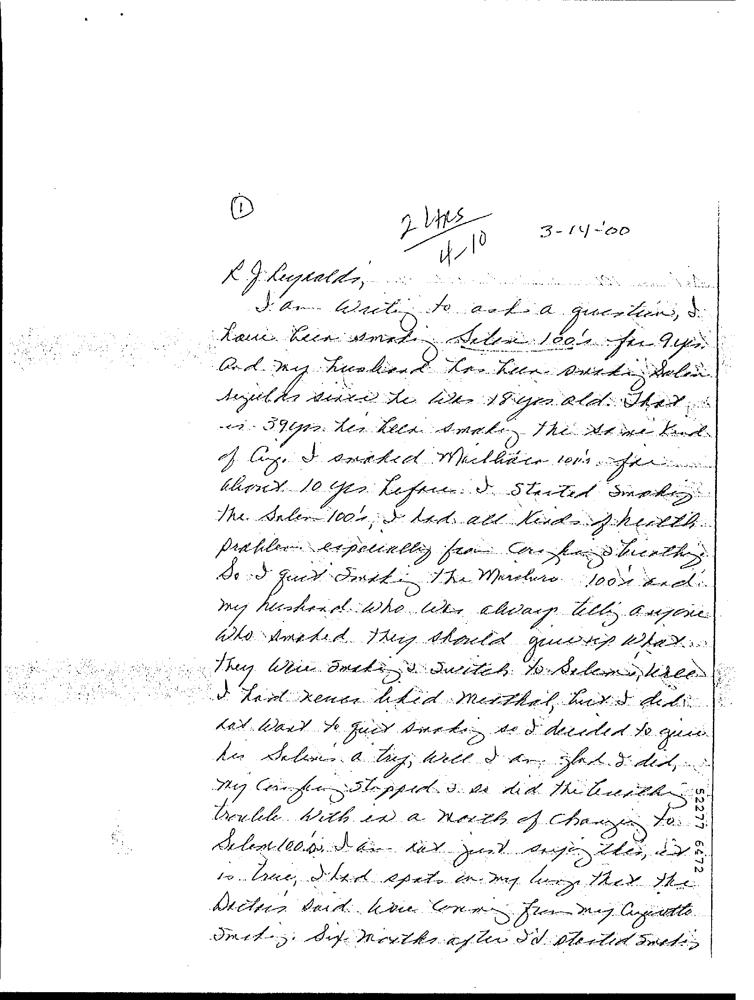 1
2 Ltrs
4-10
3-14-'00
R J Reynolds,
I am writing to ask a question, I
have been smoking Salem 100's for 9 yrs.
And my husband has been smoking Salem
regulars since he was 18 yrs old. That
is 39 yrs. he's been smoking the same kind
of Cig. I smoked 100's for
about 10 yrs before I started smoking
the Salem 100's, I had all kinds of health
problem especially from coughing & breathing
So I quit smoking the 100's and
my husband who was always telling anyone
who smoked they should give up what
they were smoking & switch to Salems, Well
I had never liked Menthol, but I did
not want to quit smoking so I decided to give
his Salems a try, Well I am glad I did,
my coughing stopped & so did the breathing
trouble with in a month of changing to
Salem 100's, I am not just saying this, it
is true, I had spots on my lung that the
Doctors said were coming from my Cigarette
smoking. Six months after I'd started smoking
52277 6472